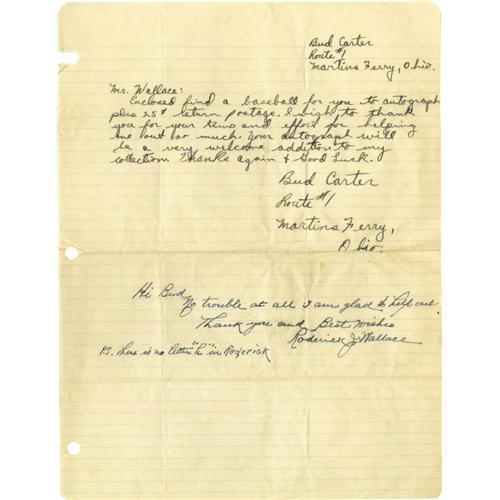 Bud Carter
Route #1
Martins Ferry, Ohio.
Mr. Wallace:
Enclosed find a baseball for you to autograph
plus 25¢ return postage. I wish to thank
you for your time and effort for helping
me out so much. Your autograph will
be a very welcome addition to my
collection. Thanks again & Good Luck.
Bud Carter
Route #1
Martins Ferry,
Ohio.
Hi Bud
No trouble at all I am glad to help out.
Thank you and Best Wishes
Roderick J. Wallace
P.S. There is no letter "h" in Roderick